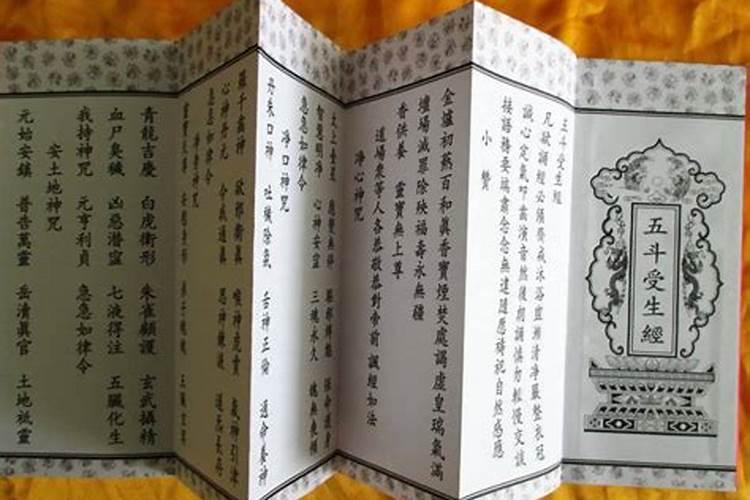 五斗受生經
五斗受生經
凡欲誦經必須齋戒沐浴盥漱清淨嚴整衣冠
誠心定氣叩齒演音然後朗誦慎勿輕慢交談
接語務要端肅念念無違隨應禱祀自然感應
小贊
金爐初爇百和真香寶煙焚處謁虛皇瑞氣滿
壇場滅罪除殃福壽永無疆
香供養 靈寶無上尊
道場眾等人各恭敬恭對帝前 誦經如法
淨心神咒
太上臺星 應變無停 驅邪縛魅 保命護身
智慧明淨 心神安寧 三魂永久 魄無喪傾
急急如律令
淨口神咒
丹朱口神 吐穢除氛 舌神正倫 通命養神
羅千齒神 卻邪衛真 喉神虎賁 氣神引津
心神丹元 令我通真 思神鍊液 道炁長存
急急如律令
淨身神咒
靈寶天尊 安慰身形 弟子魂魄 五臟玄冥
青龍吉慶 白虎衛形 朱雀顧護 玄武攝精
血尸臭穢 凶惡潛窪 七液得注 五臟化生
我持神咒 元亨利貞 急急如律令
安土地神咒
元始安鎮 普告萬靈 岳瀆真官 土地祗靈